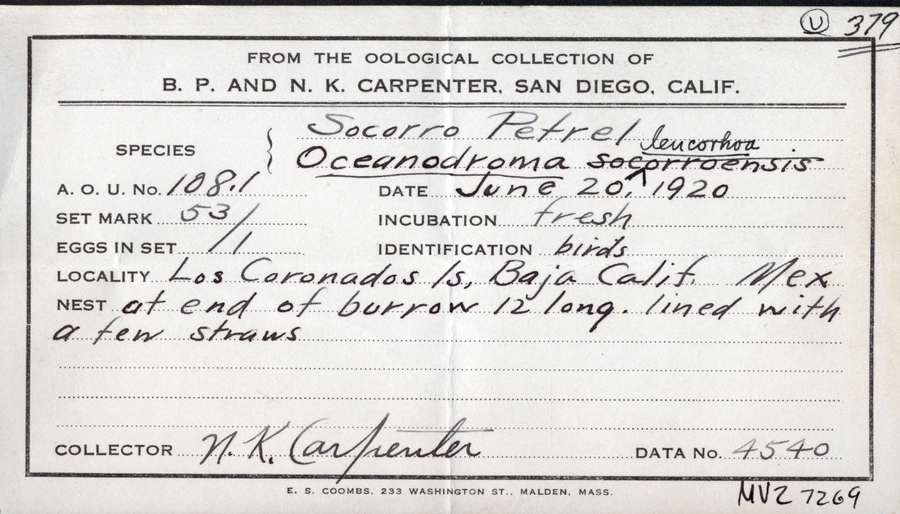 U 379
FROM THE OOLOGICAL COLLECTION OF
B. P. AND N. K. CARPENTER, SAN DIEGO, CALIF.
SPECIES Socorro Petrel
leucorhoa
Oceanodroma socorroensis
A. O. U. No. 108.1 DATE June 20, 1920
SET MARK 53/1 INCUBATION fresh
EGGS IN SET 1/1 IDENTIFICATION birds
LOCALITY Los Coronados Is, Baja Calif. Mex
NEST at end of burrow 12 long. lined with
a few straws
COLLECTOR N. K. Carpenter DATA No. 4540
E. S. COOMBS, 233 WASHINGTON ST., MALDEN, MASS.
MVZ 7269